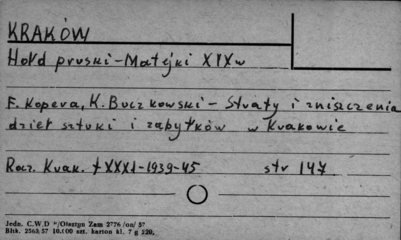 KRAKÓW
Hołd pruski - Matejki XIXw
F. Kopera, K. Buczkowski - Straty i zniszczenia
dzieł sztuki i zabytków w Krakowie
Rocz. Krak. t XXXI - 1939-45 str 147
Jedn. C.W.D "/Olsztyn Zam 2776 /on/ 57
Blok. 2563/57 10.100 szt. karton kl. 7 g 220.